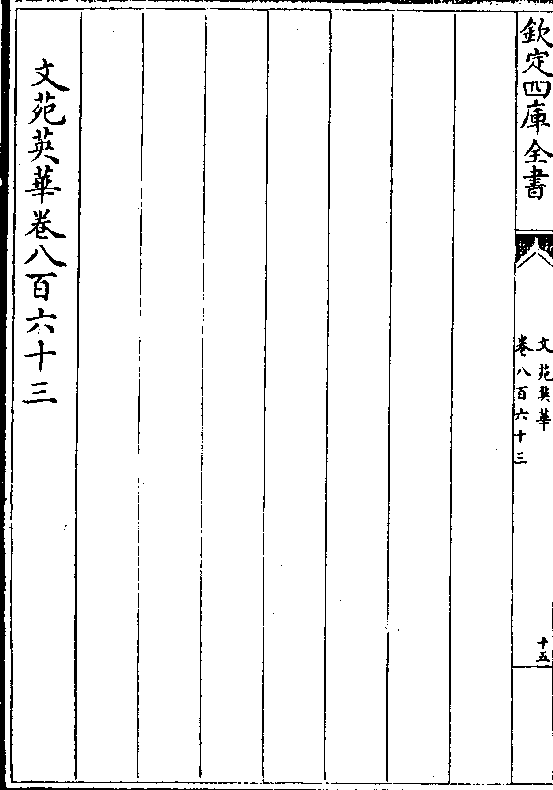 欽定四庫全書
文苑英華
卷八百六十三
十五
文苑英華卷八百六十三